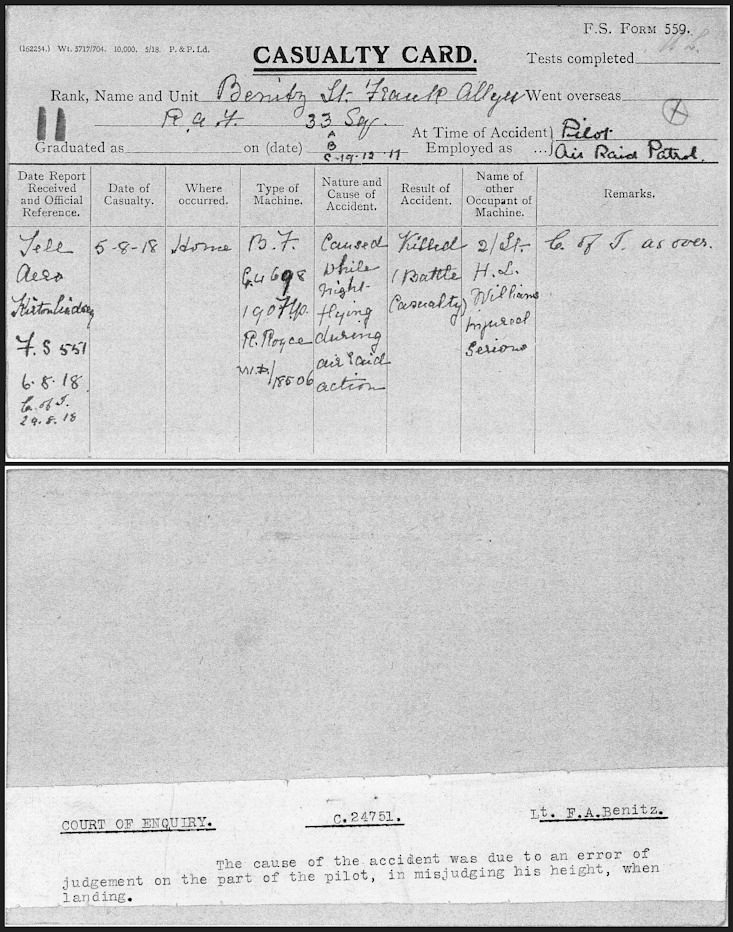 F.S. Form 559.
(162254.) Wt. 5717/704. 10,000. 5/18. P. & P. Ld.
CASUALTY CARD.
Tests completed
Rank, Name and Unit Benitz Lt. Frank Allyn Went overseas
R.A.F. 33 Sq.
Graduated as on (date)
A
B
C-19-12-17
At Time of Accident Employed as ... Pilot
Air Raid Patrol.
Date Report Received and Official Reference.
Date of Casualty.
Where occurred.
Type of Machine.
Nature and Cause of Accident.
Result of Accident.
Name of other Occupant of Machine.
Remarks.
Tele
Aero
Kirtonlindsey
F.S 551
6.8.18.
C. of I.
29.8.18
5-8-18
Home
B.F.
C.4698
190 H.p.
R.Royce
W.D./18506
Caused
while
night-
flying
during
air raid
action
Killed
(Battle
Casualty)
2/Lt.
H.L.
Williams
injured
Serious
C. of I. as over.
COURT OF ENQUIRY. C.24751. Lt. F.A.Benitz.
The cause of the accident was due to an error of
judgement on the part of the pilot, in misjudging his height, when
landing.